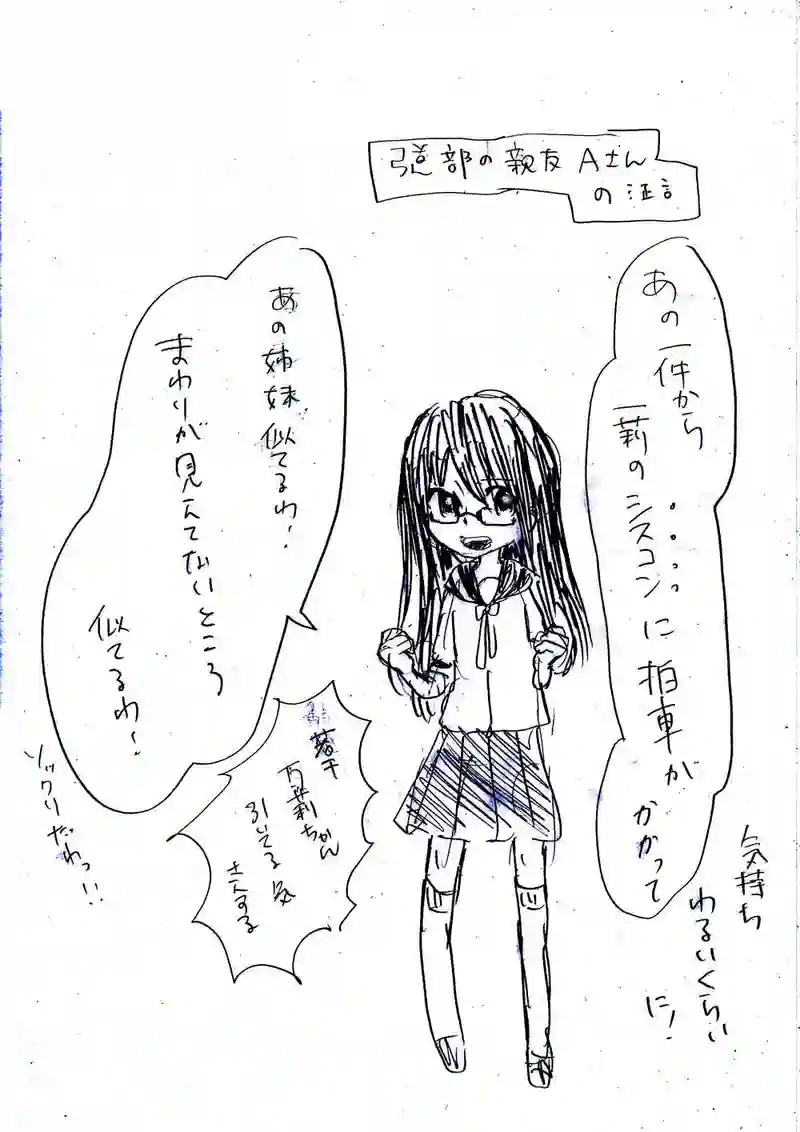 弓道部の親友 Aさん
の証言
あの一件から
一莉のシスコンに拍車が
かかって
気持ち
わるいくらい
に!
あの姉妹似てるわ!
まわりが見えてないところ
似てるわ!
ソックリだわっ!!
若干
万莉ちゃん
引いてる気
さえする